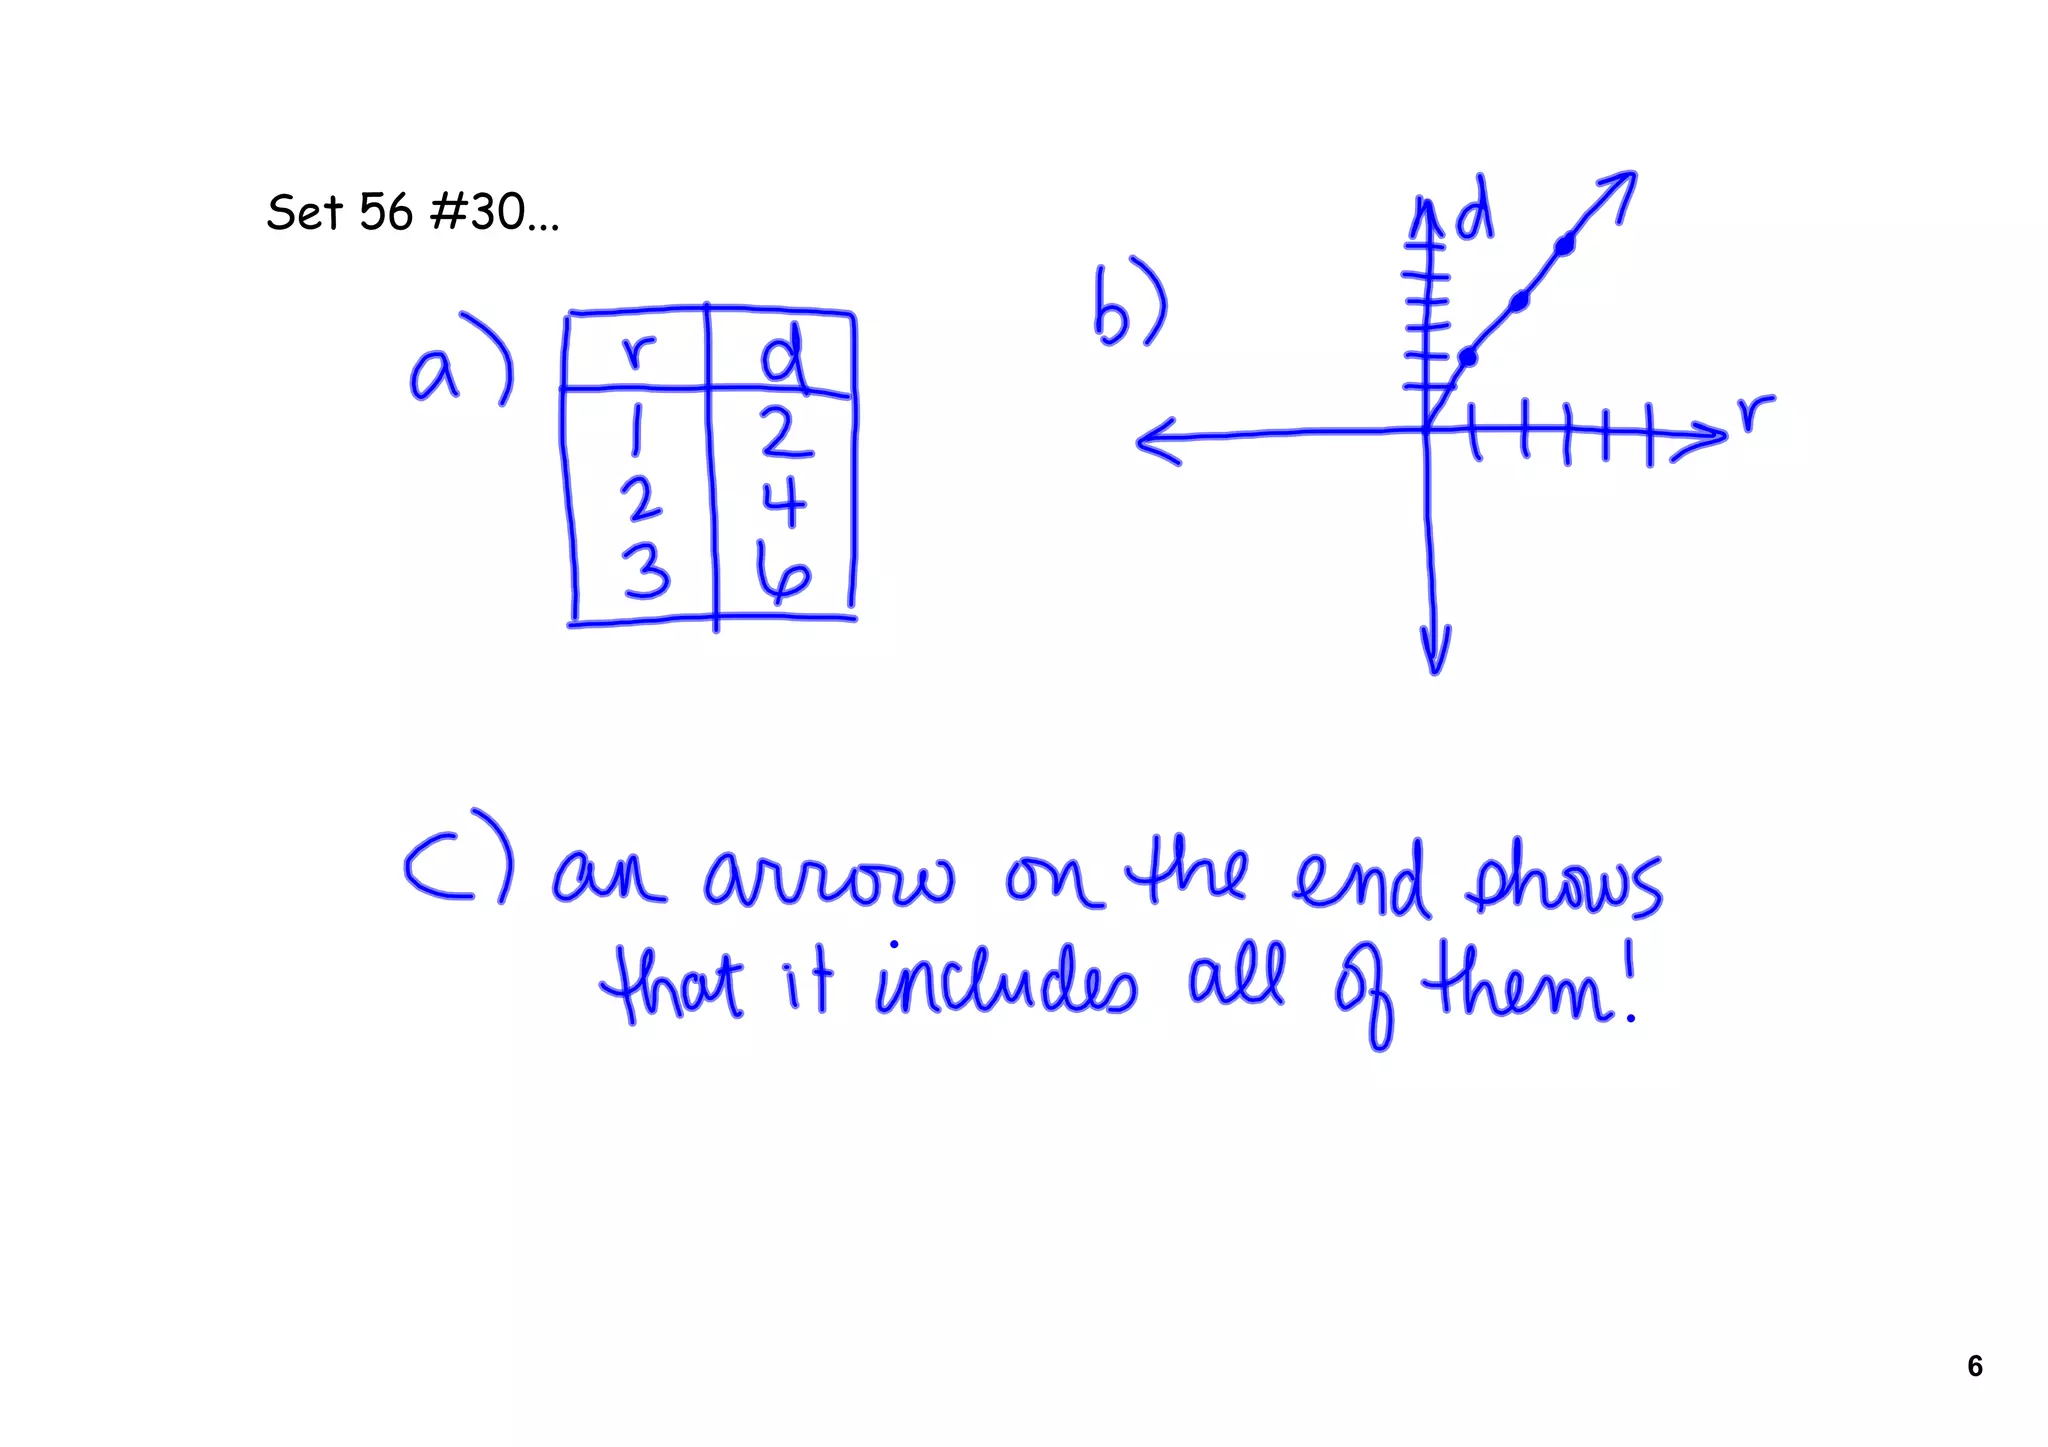 Set 56 #30...
a)
r d
1 2
2 4
3 6
b)
d
r
c) an arrow on the end shows
that it includes all of them!
6